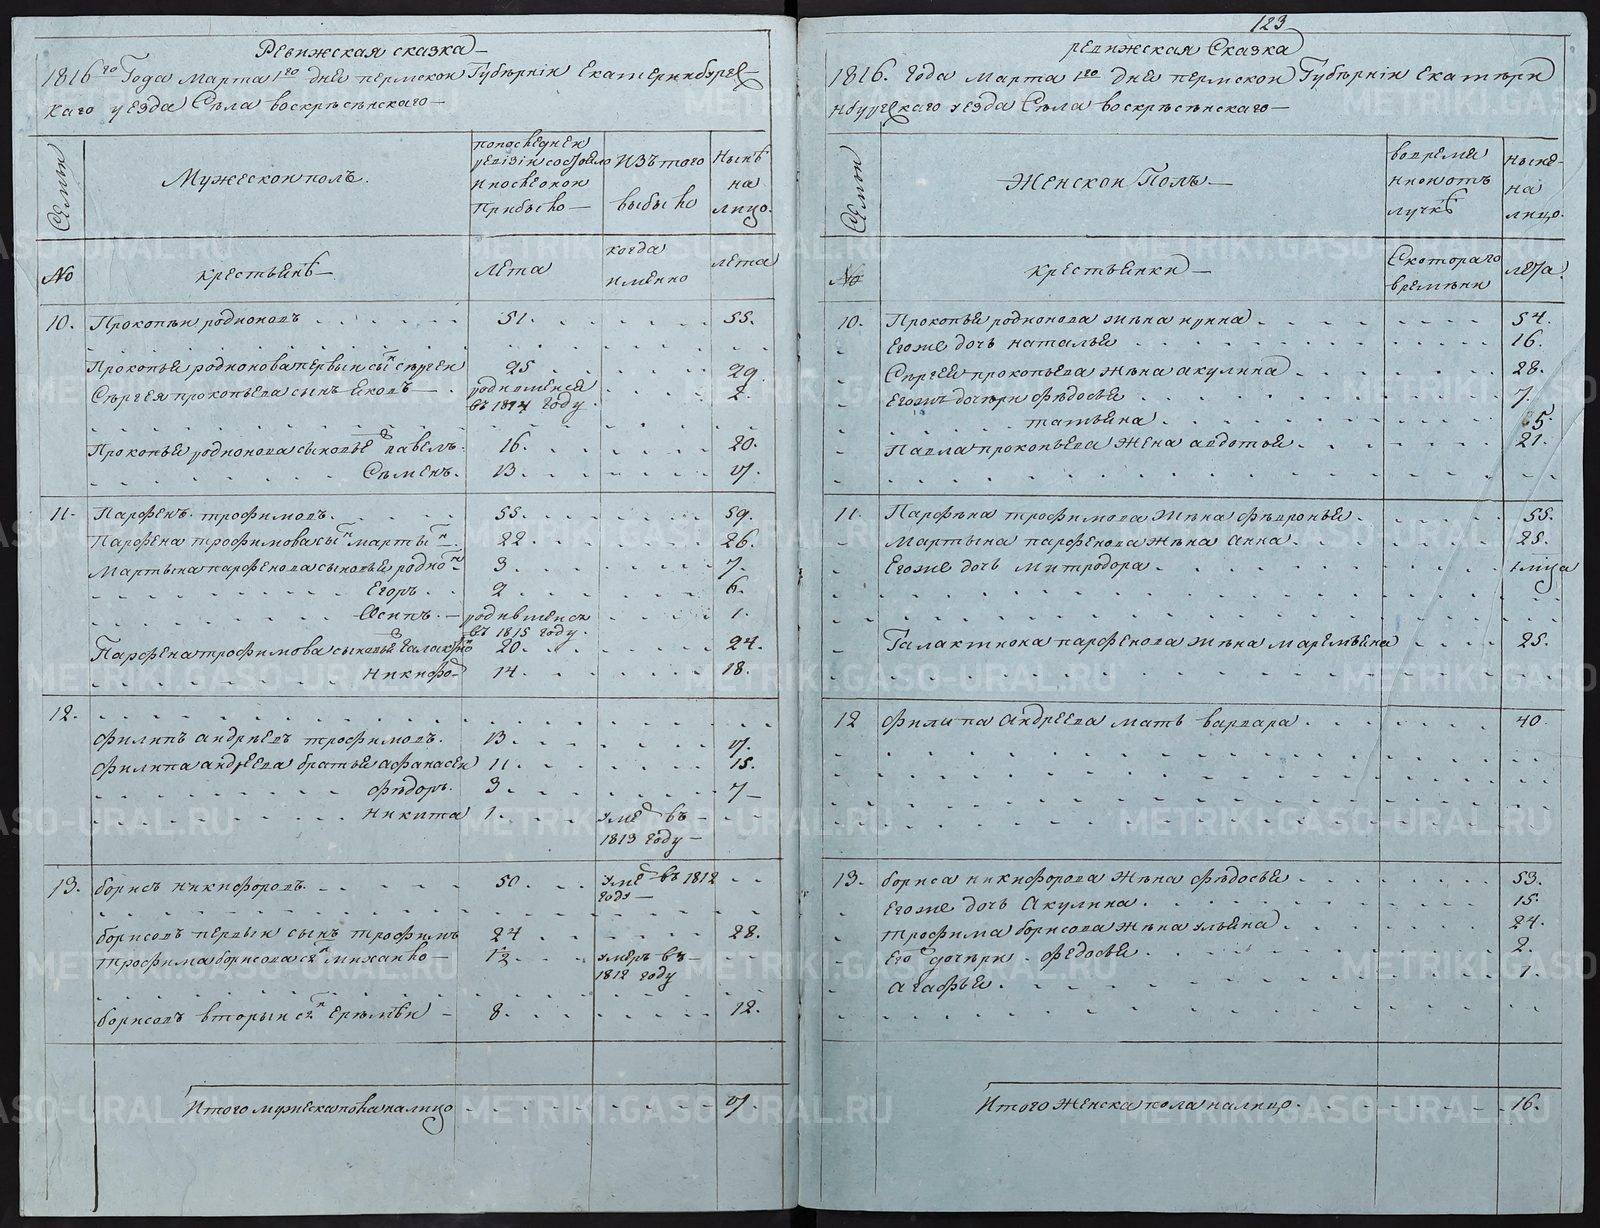 Ревижская сказка
1816го Года Марта 1го дня пермской Губѣрнiи Екатеринбургс
каго уезда Сѣла воскрѣсѣнскаго
Семьи
Мужеской полъ.
попоследней
ревiзiи состояло
ипоследной
Прибыло
Изтого
выбыло
Нынѣ
на
лицо.
No
крестьянѣ
лета
когда
имѣнно
лѣта
10. Прокопѣй родионовъ 51. 55.
Прокопья родионова первый сынъ сѣргей 25 29
Сѣргея прокопьева сынъ яковъ родившейся 2.
въ 1814 году
Прокопья родионова сыновья 2й павелъ 16. 20.
Сѣменъ. 13 17.
11. Парфенъ трофимовъ. 55. 59.
Парфена трофимова сынъ мартынъ 22. 26.
Мартына парфенова сыновья родионъ 3. 7.
Егоръ 2 6.
Осипъ. родившейся 1.
въ 1815 году.
Парфена трофимова сыновья 3 Галактио 20. 24.
Никифо 14. 18.
12.
Филипъ андрѣевъ трофимовъ. 13. 17.
Филипа андреева братья афонасей 11. 15.
Фѣдоръ. 3 7
Никита 1. умѣ въ
1813 году
13. борисъ никифоровъ. 50. умѣ въ 1812
году
борисовъ первый сынъ трофимъ 24 28.
трофима борисова сынъ михайло 1/2 умеръ въ
1812 году
борисовъ вторый сынъ ерѣмѣй 8. 12.
Итого мужеска пола налицо 17.
123
ревижская Сказка
1816. года марта 1го дня пермской Губѣрнiи Екатѣри
нбуугскаго уезда Сѣла воскрѣсѣнскаго
Семьи
Женской Полъ
вовремѣ
нной отъ
лучкѣ
ныне
на
лицо.
No
крестьянки
Скотораго
времѣни
лета.
10. Прокопья родионова жѣна нунна 54.
Егоже дочь наталья 16.
Сѣргея прокопьева жѣна акулина 28.
Егожъ дочѣри фѣдосья 7.
татьяна 5.
Павла прокопьева жена авдотья 21.
11. Парфѣна трофимова жѣна фѣвронья 55.
Мартына парфенова жѣна анна. 25.
Егоже дочь митродора. 1 мца
Галактиона парфенова жѣна маремьяна 25.
12 Филипа андреева мать варвара 40.
13. бориса никифорова жѣна фѣдосья 53.
Егоже дочь акулина. 15.
трофима борисова жѣна ульяна 24.
Его дочѣри федосья 2.
агафья. 1.
Итого Женска пола налицо 16.
METRIKI.GASO-URAL.RU